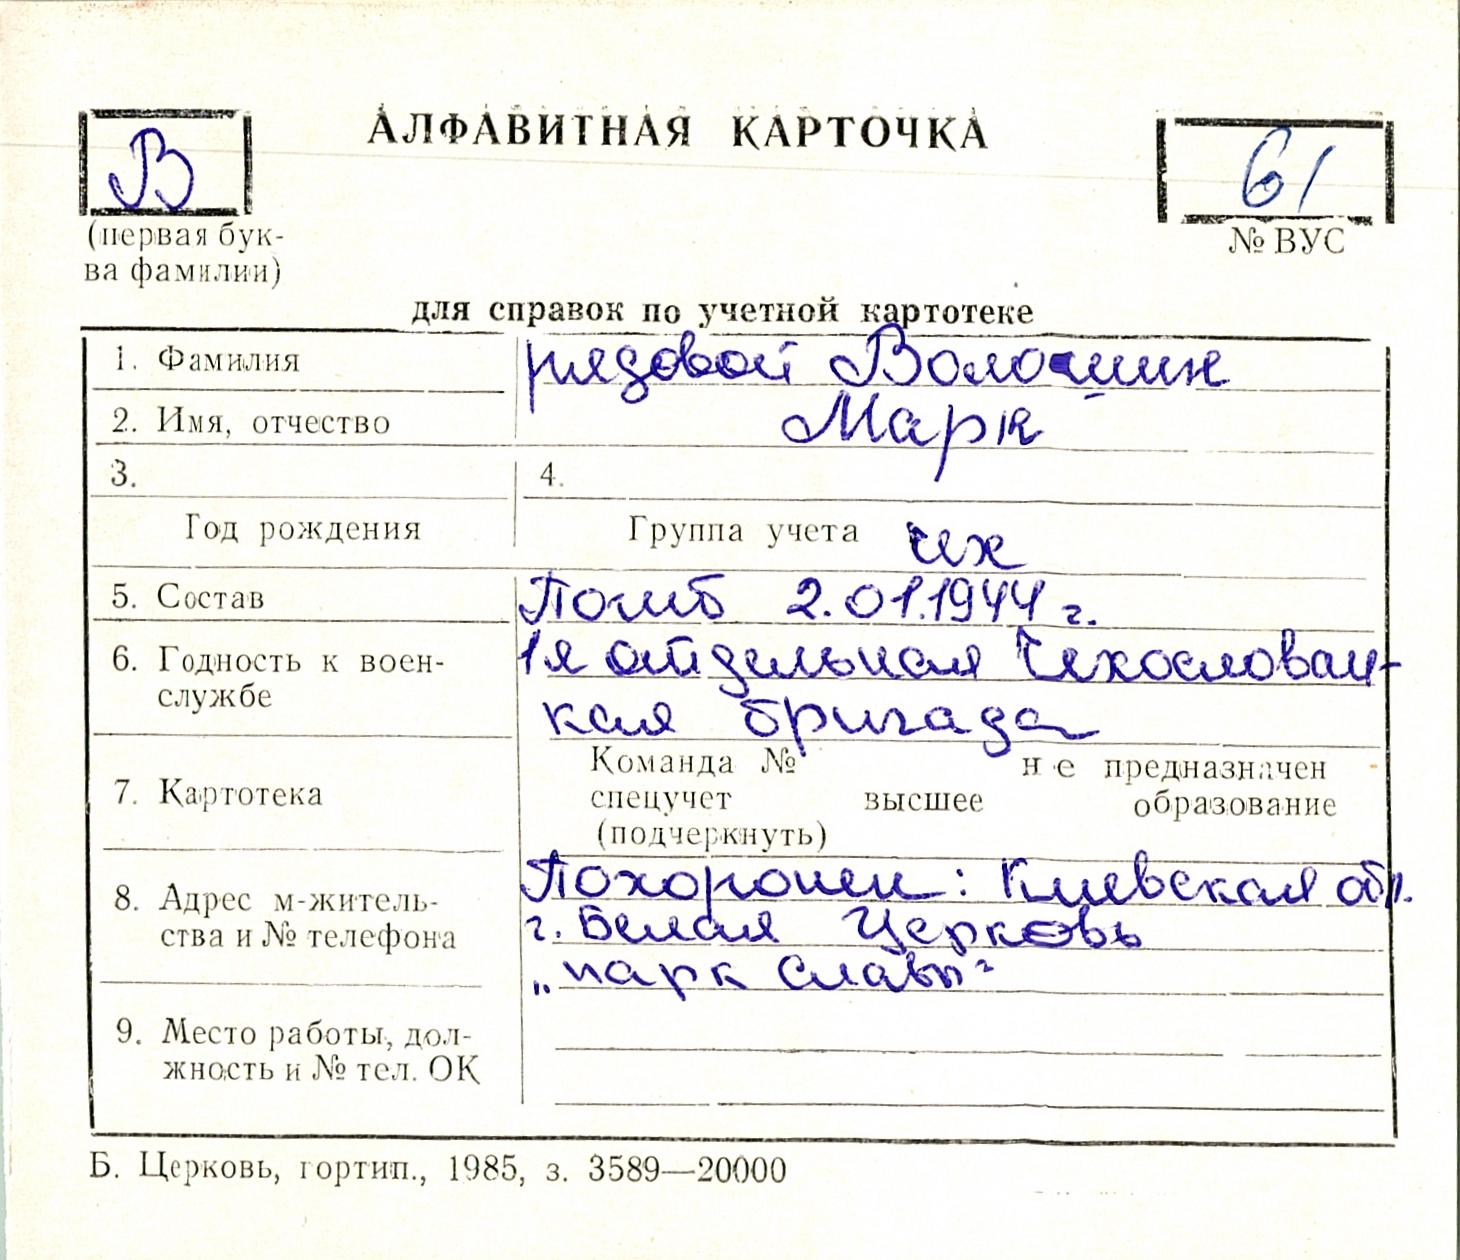 АЛФАВИТНАЯ КАРТОЧКА
В
61
(первая бук-
ва фамилии)
№ ВУС
для справок по учетной картотеке
1. Фамилия рядовой Волошин
2. Имя, отчество Марк
3. 4.
Год рождения Группа учета чех
5. Состав Погиб 2.01.1944 г.
6. Годность к воен-
службе
1я отдельная Чехословац-
кая бригада
7. Картотека
Команда № не предназначен
спецучет высшее образование
(подчеркнуть)
8. Адрес м-житель-
ства и № телефона
Похоронен: Киевская обл.
г. Белая Церковь
„парк Славы"
9. Место работы, дол-
жность и № тел. ОК
Б. Церковь, гортип., 1985, з. 3589—20000